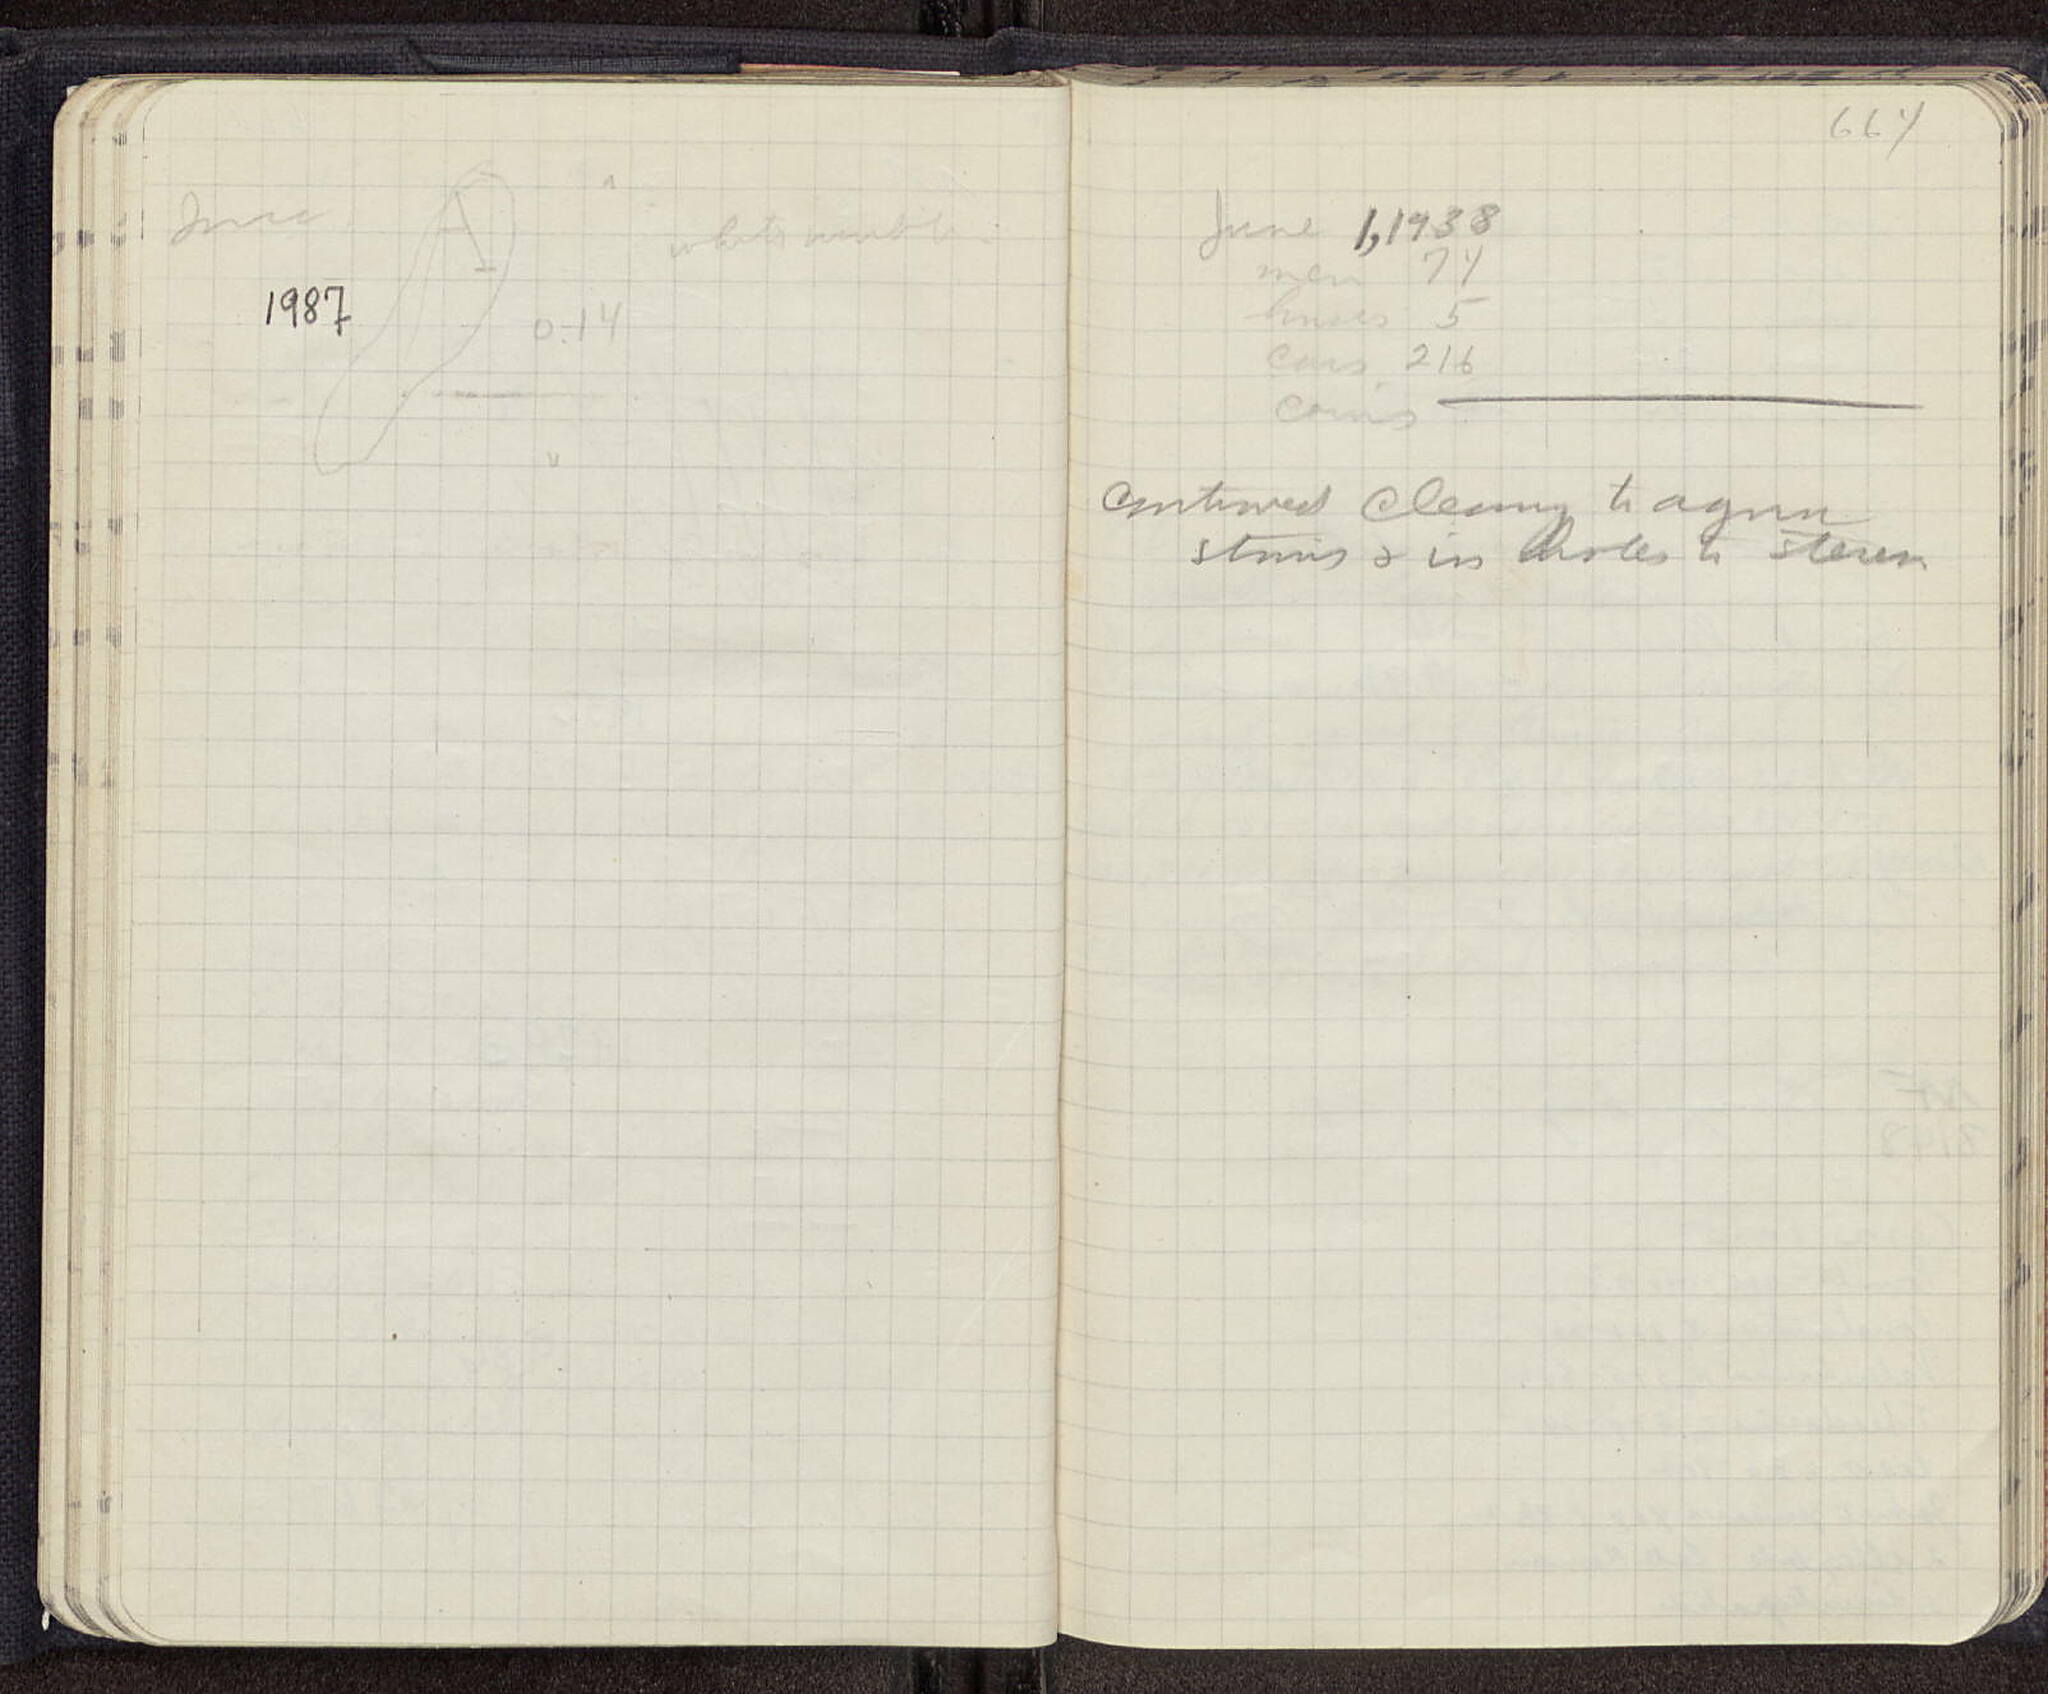 1987
0.14
white marble
664
June 1, 1938
men 74
horses 5
cars 216
coins
continued cleaning to agora
& in holes to